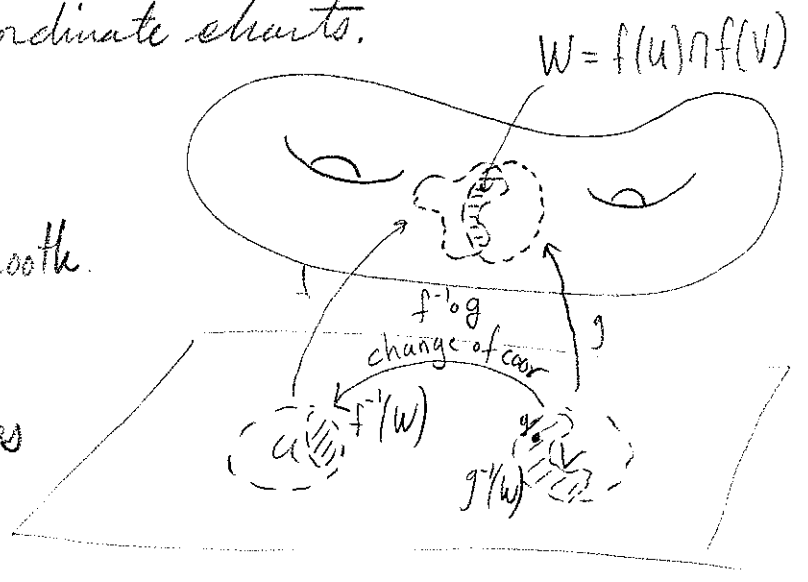 ordinate charts.
W = f(U) ∩ f(V)
ooth.
f
f⁻¹∘g
change of coor
g
es
U
f⁻¹(W)
V
g⁻¹(W)